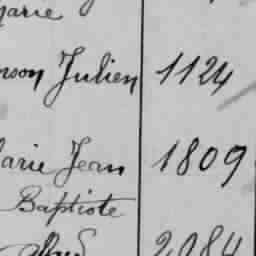 Marie
Julien 1124
Marie Jean 1809
Baptiste
2084